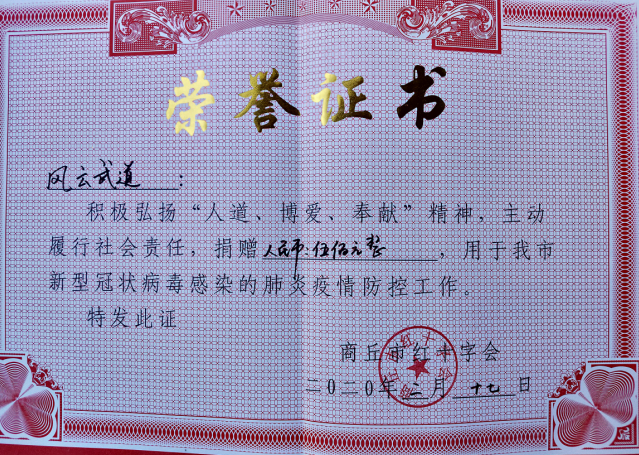 荣誉证书
风云武道：
积极弘扬“人道、博爱、奉献”精神，主动
履行社会责任，捐赠人民币：伍佰元整，用于我市
新型冠状病毒感染的肺炎疫情防控工作。
特发此证
商丘市红十字会
二〇二〇年二月十七日